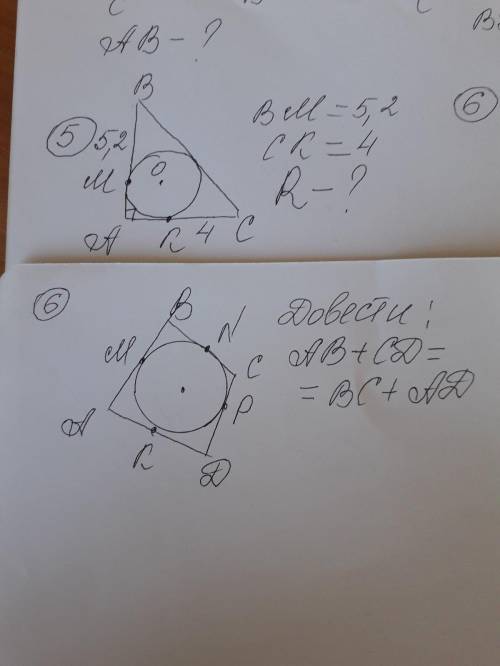 C
B
C
B
AB - ?
5
B
5,2
O
M
A
K
4
C
BM = 5,2
CK = 4
R - ?
6
6
B
N
M
C
P
A
K
D
Довести:
AB + CD =
= BC + AD